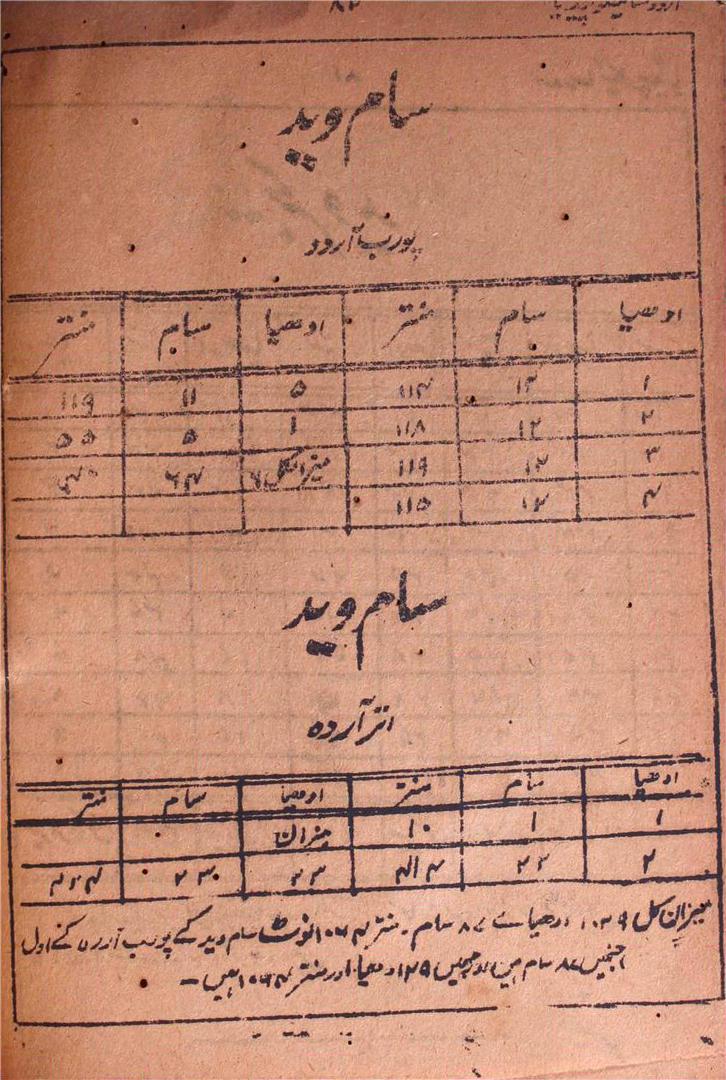 ۸۲
سام وید
پورب آردد
ادھیا سام منتر ادھیا سام منتر
۱ ۱۲ ۱۱۴ ۵ ۱۱ ۱۱۹
۲ ۱۲ ۱۱۸ ۱ ۵ ۵۵
۳ ۱۲ ۱۱۹ میزان کل ۶ ۶۴
۴ ۱۲ ۱۱۵
سام وید
انتر آردہ
ادھیا سام منتر ادھیا سام منتر
۱ ۱ ۱۰ میزان
۲ ۲۲ ۲۳ ۲۳ ۴۲۴
میزان کل ۱۰۲۹ ادھیائے ۸۷ سام ۔ منتر ۱۰۶۴ نوٹ سام وید کے پورب آردہ کے اول
جنمیں ۸۷ سام ہیں اور جمیں ۲۹ ادھیا، اور منتر ۱۰۶۴ ہیں ۔